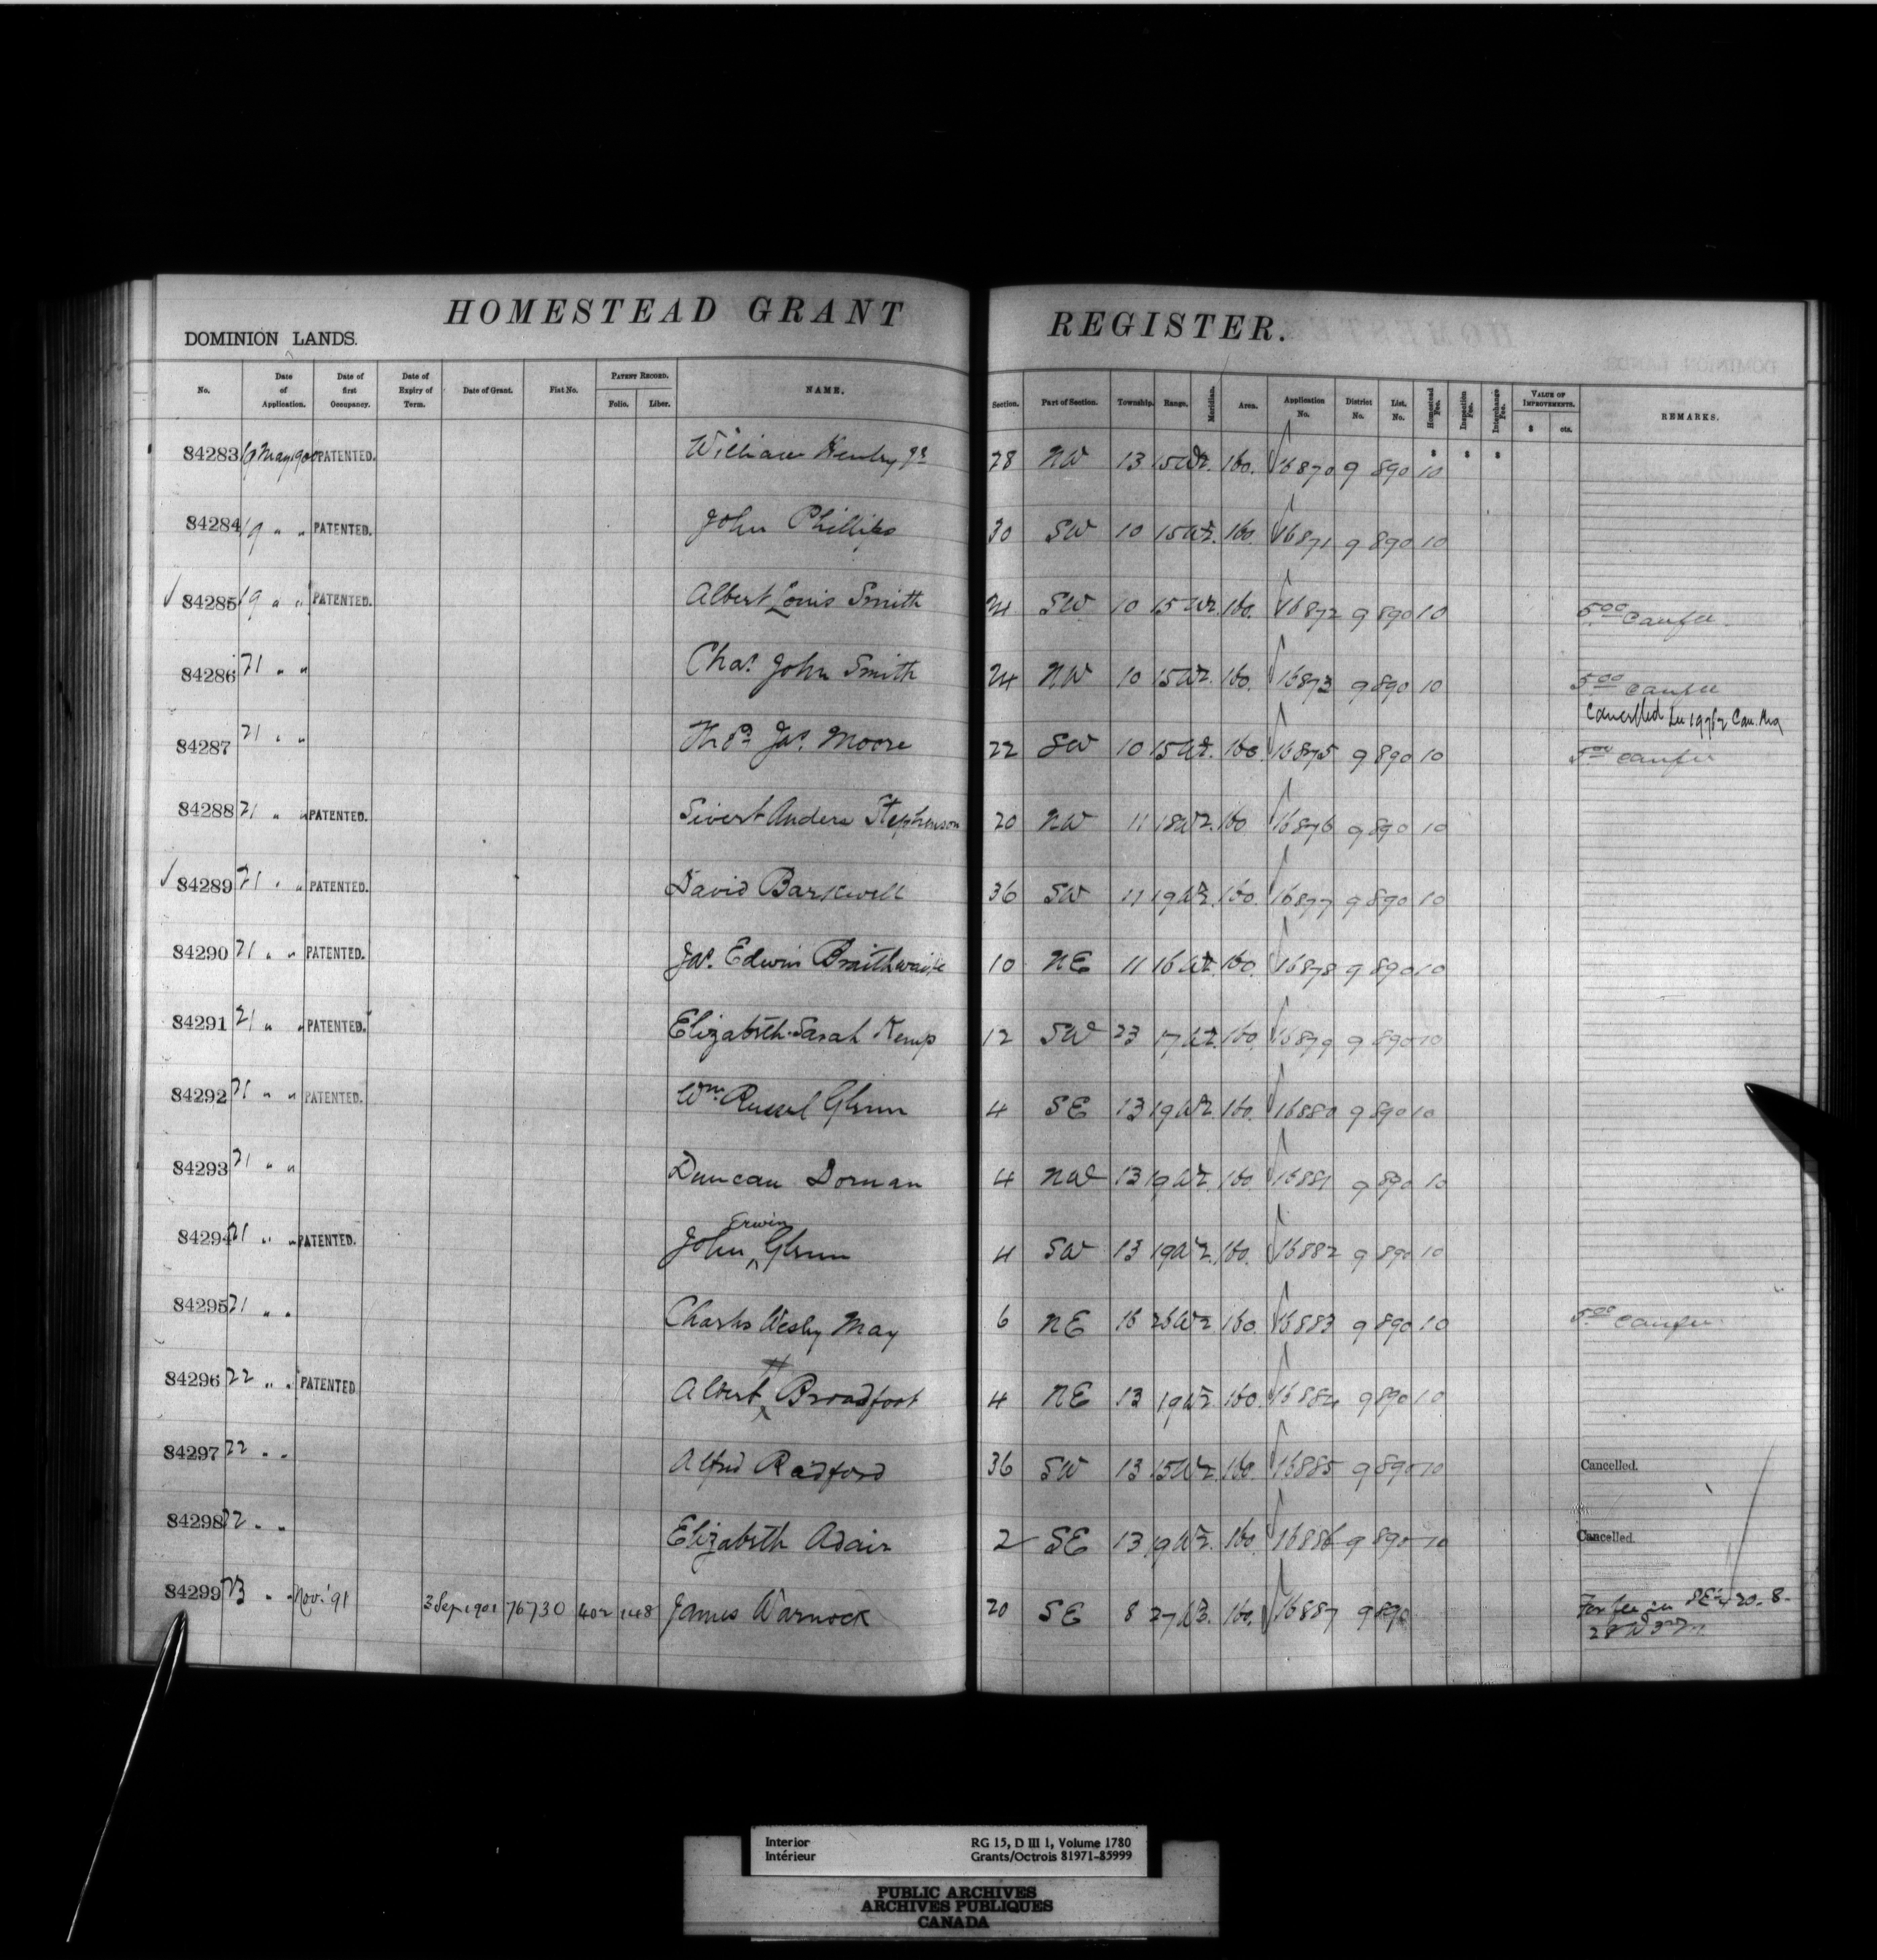 HOMESTEAD GRANT REGISTER.
DOMINION LANDS.
No. Date of Application. Date of first Occupancy. Date of Expiry of Term. Date of Grant. Fiat No. PATENT RECORD. Folio. Liber. NAME. Section. Part of Section. Township. Range. Meridian. Area. Application No. District No. List. No. Homestead Fee. Inspection Fee. Interchange Fee. VALUE OF IMPROVEMENTS. $ cts. REMARKS.
84283 19 May 1900 PATENTED. William Henley Jr 28 NW 13 15 W2. 160. 16870 9 890 10
84284 19 " " PATENTED. John Phillips 30 SW 10 15 W2. 160. 16871 9 890 10
84285 19 " " PATENTED. Albert Louis Smith 24 SW 10 15 W2. 160. 16872 9 890 10 5.00
84286 21 " " Chas. John Smith 24 NW 10 15 W2. 160. 16873 9 890 10 5.00
Cancelled
84287 21 " " Thos. Jas. Moore 22 SW 10 15 W2. 160. 16875 9 890 10 5.00
84288 21 " " PATENTED. Sivert Anders Stephenson 20 NW 11 18 W2. 160 16876 9 890 10
84289 21 " " PATENTED. David Barkwell 36 SW 11 19 W2. 160. 16877 9 890 10
84290 21 " " PATENTED. Jas. Edwin Braithwaite 10 NE 11 16 W2. 160. 16878 9 890 10
84291 21 " " PATENTED. Elizabeth Sarah Kemp 12 SW 23 17 W2. 160. 16879 9 890 10
84292 21 " " PATENTED. Wm. Russel Glenn 4 SE 13 19 W2. 160. 16880 9 890 10
84293 21 " " Duncan Dornan 4 NW 13 19 W2. 160. 16881 9 890 10
84294 21 " " PATENTED. John Erwin Glenn 4 SW 13 19 W2. 160. 16882 9 890 10
84295 21 " " Charles Wesley May 6 NE 16 26 W2 160. 16883 9 890 10 5.00
84296 22 " " PATENTED Albert H Broadfoot 4 NE 13 19 W2. 160. 16884 9 890 10
84297 22 " " Alfred Radford 36 SW 13 15 W2. 160. 16885 9 890 10 Cancelled.
84298 22 " " Elizabeth Adair 2 SE 13 19 W2. 160. 16886 9 890 10 Cancelled.
84299 23 " " Nov. '91 3 Sep 1901 76730 402 148 James Warnock 20 SE 8 27 W3. 160. 16887 9 890 For fee see SE 1/4 20. 8.
28 W 3rd M.
Interior RG 15, D III 1, Volume 1780
Intérieur Grants/Octrois 81971-85999
PUBLIC ARCHIVES
ARCHIVES PUBLIQUES
CANADA